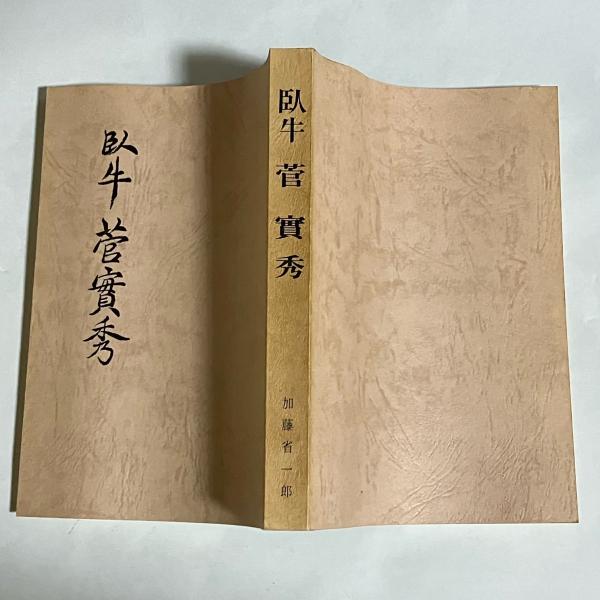 臥牛 菅實秀
臥牛 菅 實秀
加藤省一郎